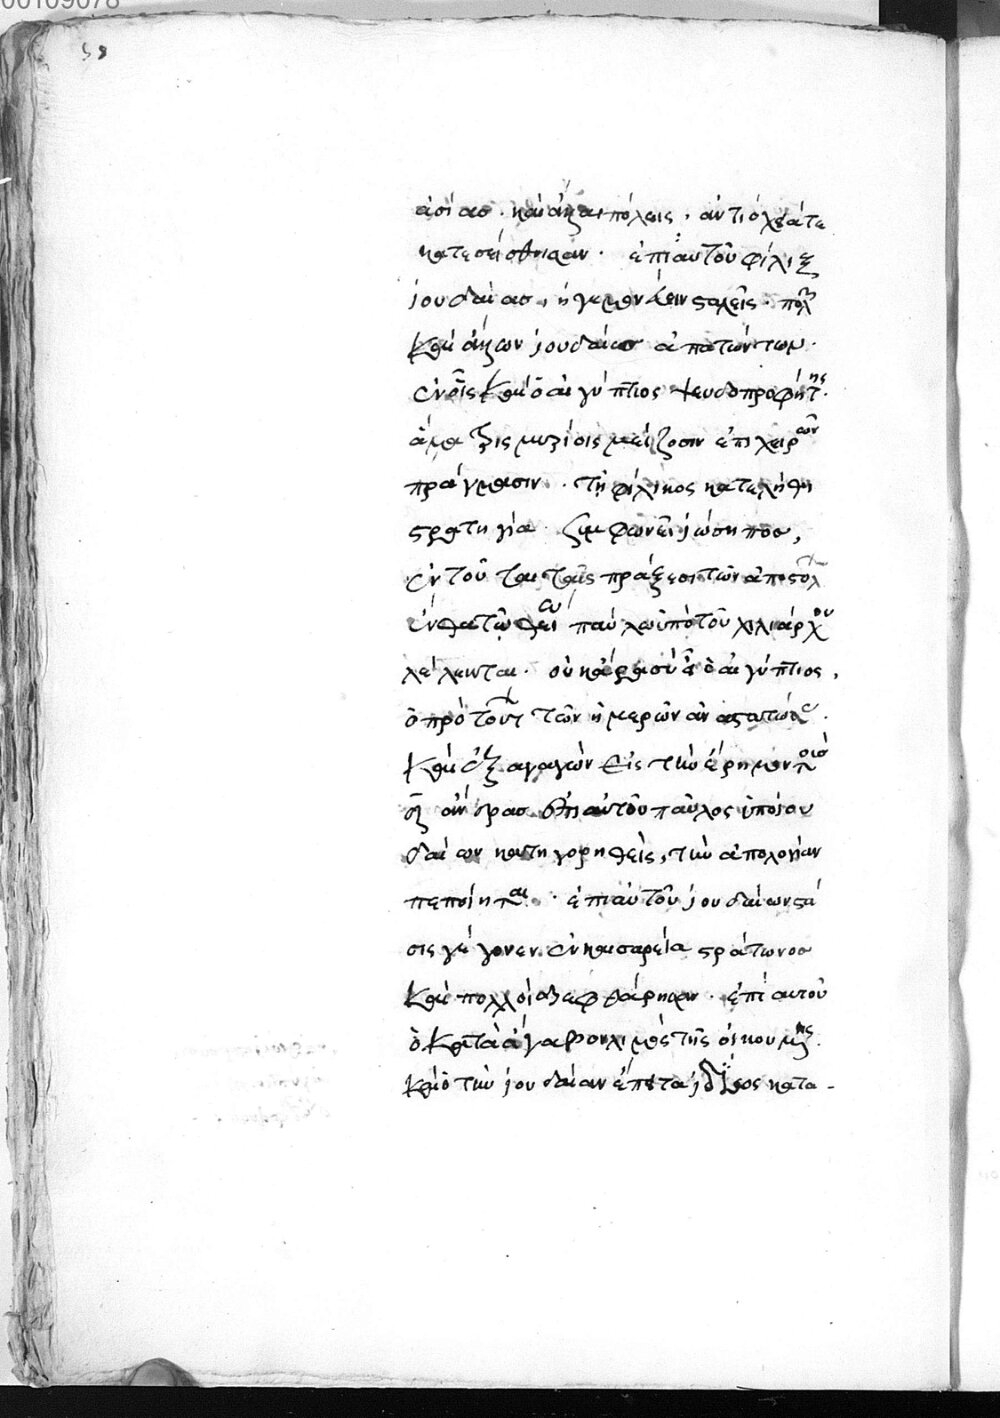 00109078
ἀσίας · καὶ ἄλλαι πόλεις · ἀντιόχεά τε
κατεσείσθησαν · ἐπὶ αὐτοῦ φίλιξ
ἰουδαίας, ἡγεμονεύειν σαλεὶς · πολλ
καὶ ἄλλων ἰουδαίας ἀπατώντων ·
ἐν οἷς καὶ ὁ αἰγύπτιος ψευδοπροφήτης ·
ἅμα τρισμυρίοις μείζοσιν ἐπιχειρῶν
πράγμασιν · τῇ φίλικος κατελήφθη
στρατηγία · συμφωνεῖ ἰώσηπος,
ἐν τούτω ταῖς πράξεσι τῶν ἀποστόλ
ἔνθα τῶ παύλω ὑπὸ τοῦ χιλιάρχου
λέλεκται · οὐκ ἄρα σὺ εἶ ὁ αἰγύπτιος,
ὁ πρὸ τούτων τῶν ἡμερῶν ἀναστατώσας ·
καὶ ἐξαγαγὼν εἰς τὴν ἔρημον τρισ
ἄνδρας · ἐπὶ αὐτοῦ παῦλος ὑπὸ ἰου
δαίων κατηγορηθεὶς, τὴν ἀπολογίαν
πεποίηται · ἐπὶ αὐτοῦ ἰουδαίων στά
σις γέγονεν ἐν καισαρεία στράτωνος
καὶ πολλοὶ διεφθάρησαν · ἐπὶ αὐτοῦ
ὁ κατὰ ἄγαβον λιμὸς τῆς οἰκουμένης ·
καὶ ὁ τὴν ἰουδαίαν κατα-